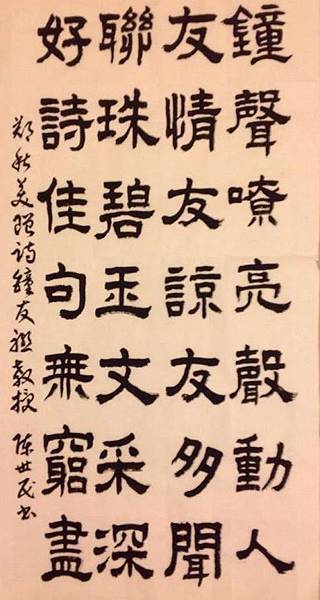 鐘聲嘹亮聲動人
友情友諒友多聞
聯珠碧玉文采深
好詩佳句無窮盡
郑秋美 诗鐘友 教授 陈世民书